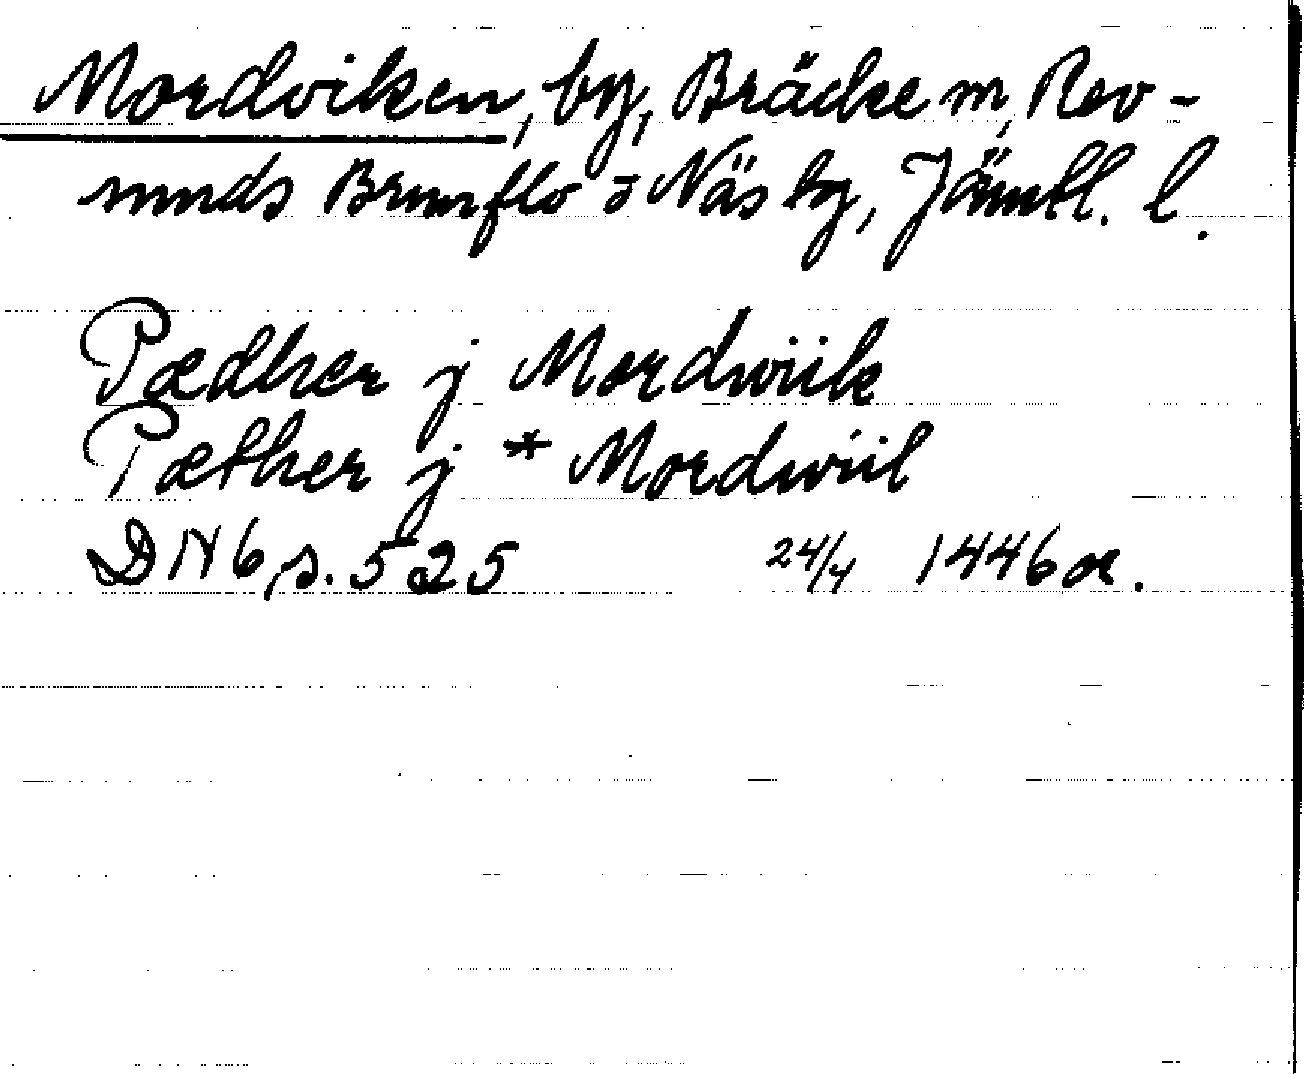 Mordviken, by, Bräcke m, Rev-
sunds Brunflo o Näs tg, Jämtl. l.
Pædher j Mordwiik
Pæther j * Mordwiil
DN 6, s. 525 24/4 1446 or.